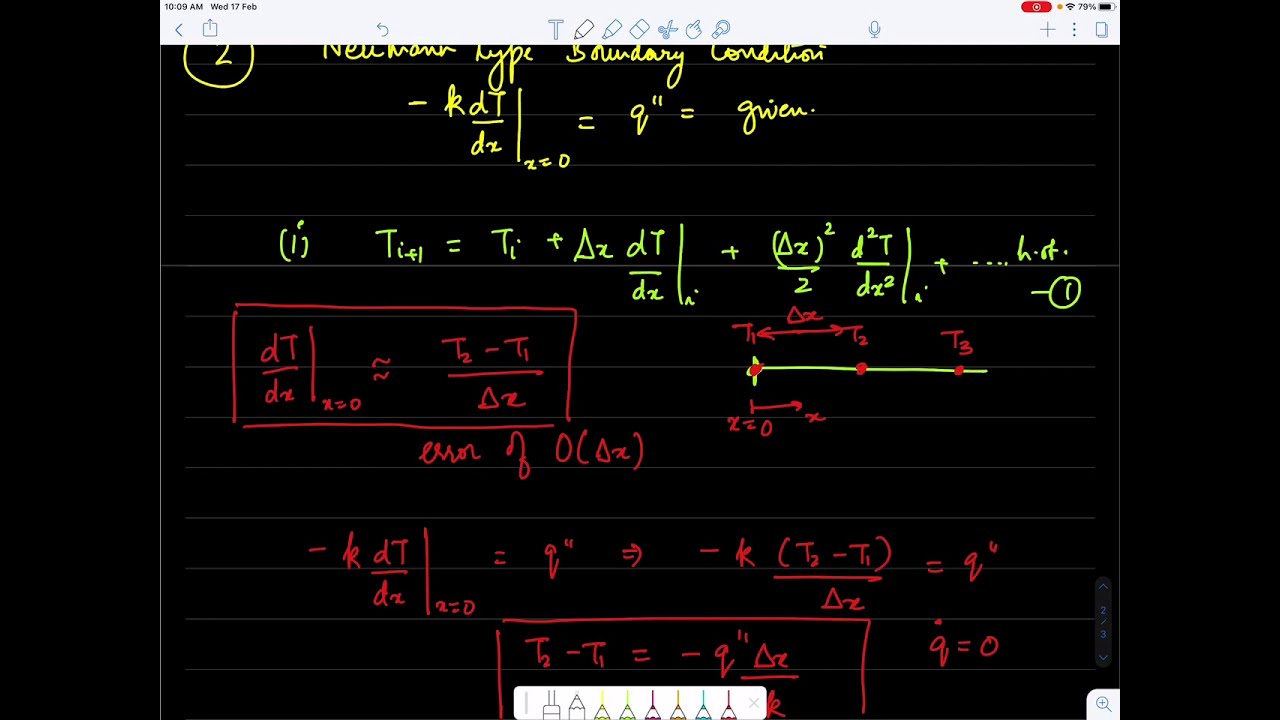 10:09 AM Wed 17 Feb
79%
2 Neumann type Boundary Condition
- k dT/dx |x=0 = q" = given.
(i) Ti+1 = Ti + Δx dT/dx |i + (Δx)²/2 d²T/dx² |i + .... h.o.t. - ①
dT/dx |x=0 ≈ T2 - T1 / Δx
T1 Δx T2 T3
x=0 x
error of O(Δx)
- k dT/dx |x=0 = q" ⇒ - k (T2 - T1)/Δx = q"
T2 - T1 = - q" Δx/k
q̇ = 0
2 / 3